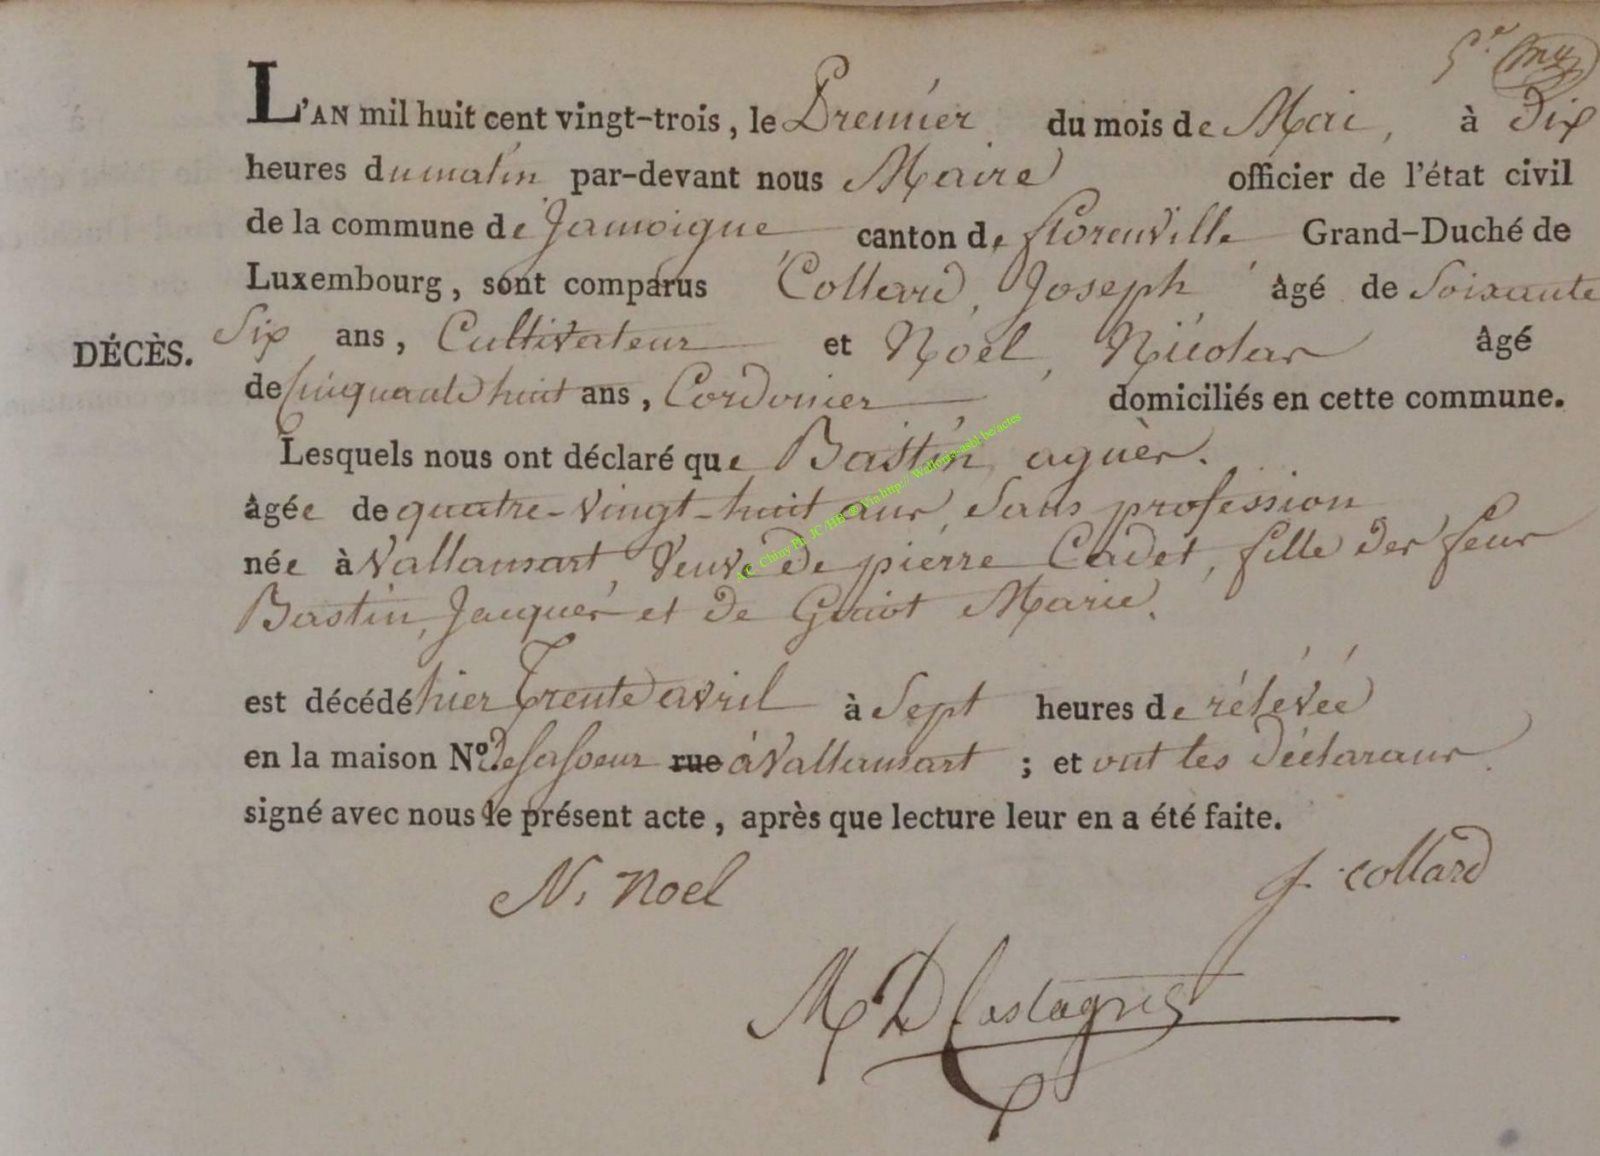 L'AN mil huit cent vingt-trois, le Premier du mois de Mai, à dix
heures du matin par-devant nous Maire officier de l'état civil
de la commune de Jamoigne canton de florenville Grand-Duché de
Luxembourg, sont comparus Collard, Joseph âgé de Soixante
DÉCÈS. Six ans, Cultivateur et Nöel, Nicolas âgé
de Cinquante huit ans, Cordonier domiciliés en cette commune.
Lesquels nous ont déclaré que Bastin, agnès.
âgée de quatre-vingt-huit ans, Sans profession
née à Vallansart, Veuve de pierre Cadet, fille des feus
Bastin, Jacques et de Guiot Marie.
est décédé hier Trente avril à Sept heures de rélévée
en la maison N.º de sa soeur rue à Vallansart ; et ont les déclarans
signé avec nous le présent acte, après que lecture leur en a été faite.
N. Noel J. Collard